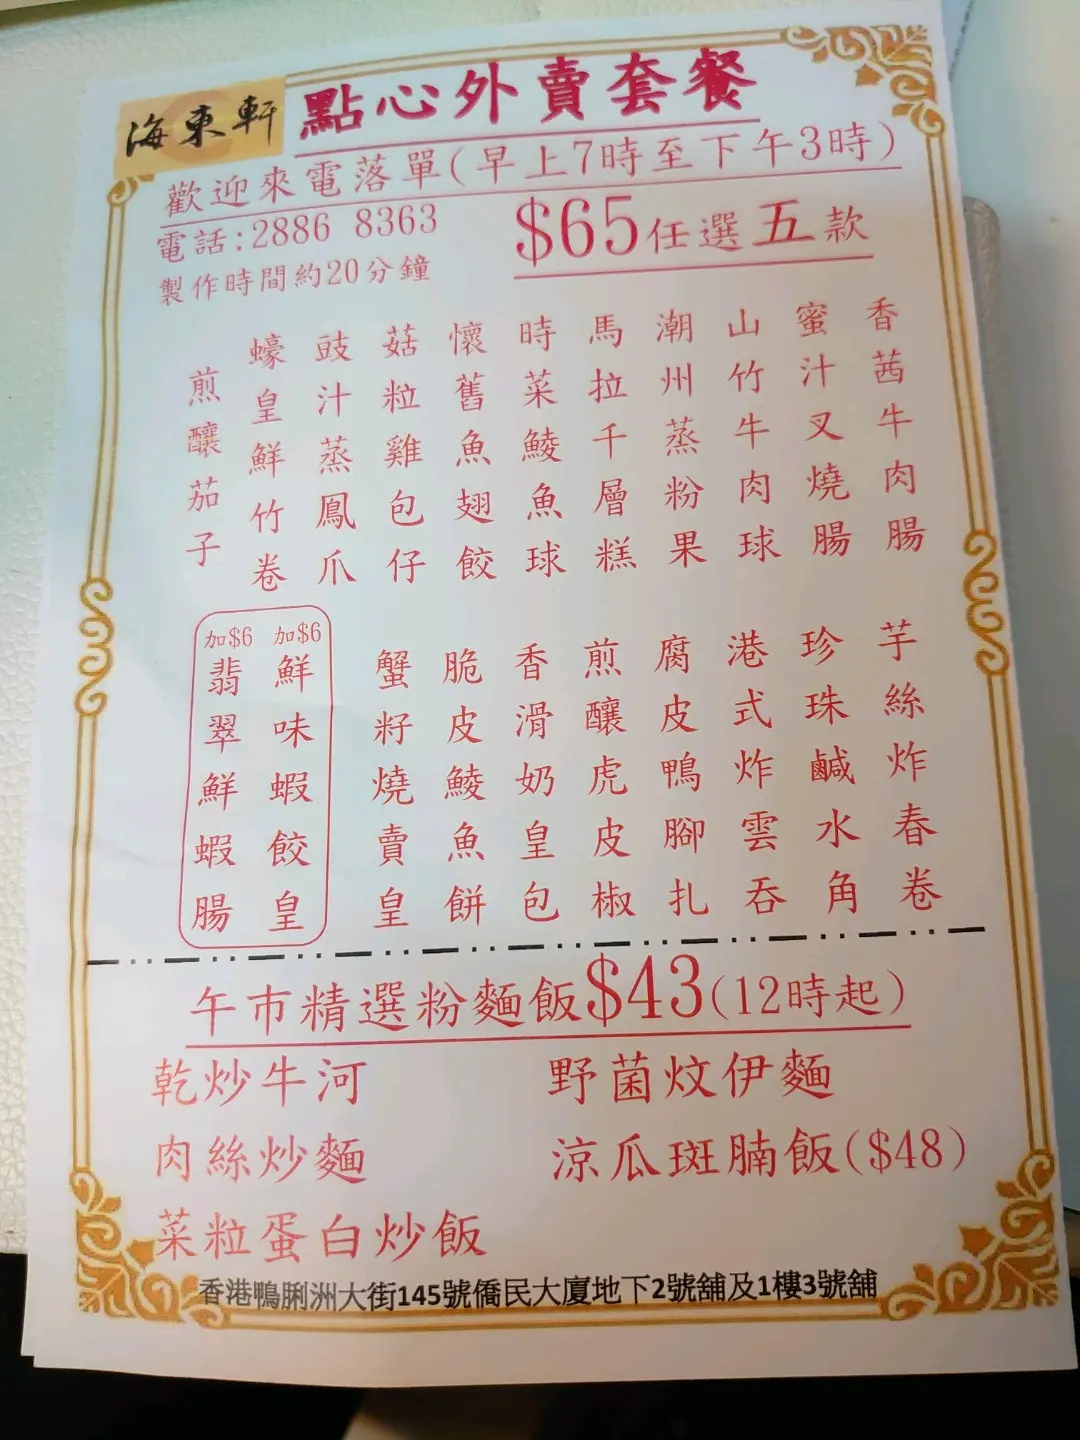 海東軒
點心外賣套餐
歡迎來電落單(早上7時至下午3時)
電話:2886 8363
製作時間約20分鐘
$65任選五款
香茜牛肉腸
蜜汁叉燒腸
山竹牛肉球
潮州蒸粉果
馬拉千層糕
時菜鯪魚球
懷舊魚翅餃
菇粒雞包仔
豉汁蒸鳳爪
蠔皇鮮竹卷
煎釀茄子
芋絲炸春卷
珍珠鹹水角
港式炸雲吞
腐皮鴨腳扎
煎釀虎皮椒
香滑奶皇包
脆皮鯪魚餅
蟹籽燒賣皇
加$6
鮮味蝦餃皇
加$6
翡翠鮮蝦腸
午市精選粉麵飯$43(12時起)
乾炒牛河
野菌炆伊麵
肉絲炒麵
涼瓜斑腩飯($48)
菜粒蛋白炒飯
香港鴨脷洲大街145號僑民大廈地下2號舖及1樓3號舖